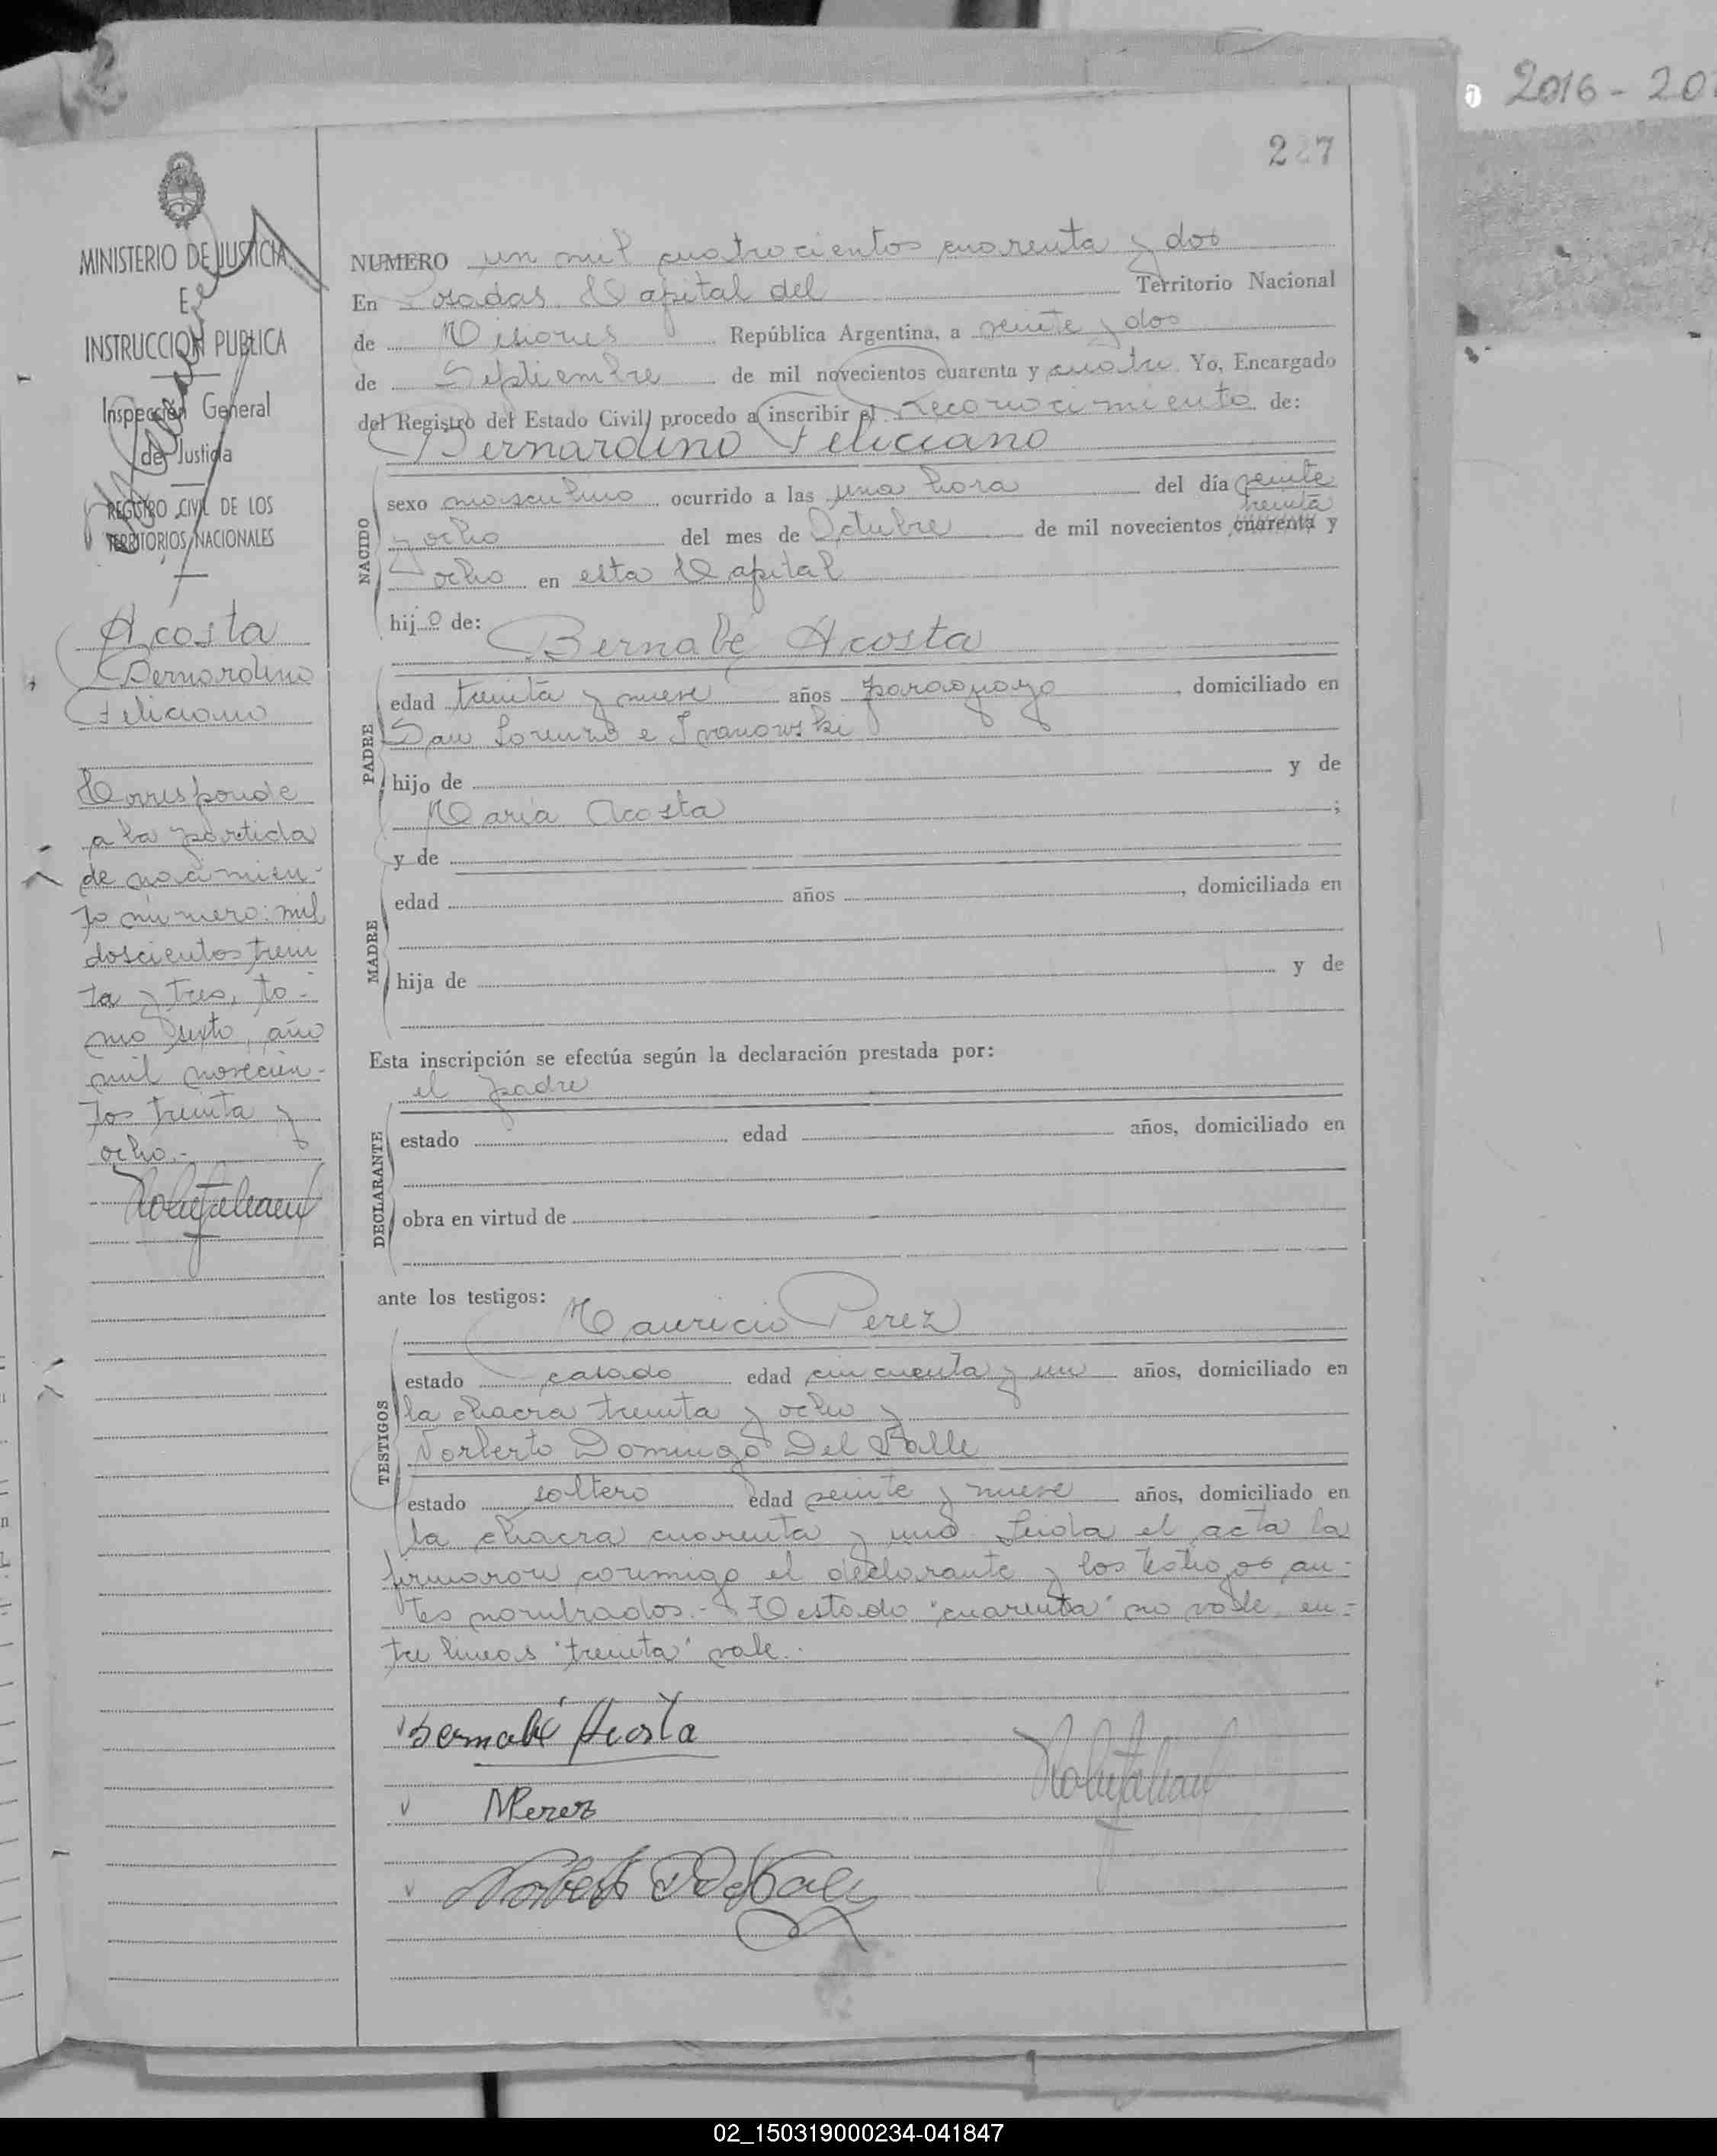 2016 - 20
227
MINISTERIO DE JUSTICIA
E
INSTRUCCION PUBLICA
Inspección General
de Justicia
REGISTRO CIVIL DE LOS
TERRITORIOS NACIONALES
Acosta
Bernardino
Feliciano
Corresponde
a la partida
de nacimien-
to número: mil
doscientos trein
ta y tres, to-
mo sexto, año
mil novecien-
tos treinta y
ocho.-
NUMERO un mil cuatrocientos cuarenta y dos
En Posadas Capital del Territorio Nacional
de Misiones República Argentina, a veinte y dos
de Septiembre de mil novecientos cuarenta y cuatro. Yo, Encargado
del Registro del Estado Civil, procedo a inscribir el reconocimiento de:
Bernardino Feliciano
NACIDO
sexo masculino ocurrido a las una hora del día veinte
treinta
y ocho del mes de Octubre de mil novecientos cuarenta y
ocho en esta Capital
hijo de:
Bernabé Acosta
PADRE
edad treinta y nueve años paraguayo, domiciliado en
San Lorenzo e Ivanowski
hijo de y de
María Acosta ;
y de
MADRE
edad años , domiciliada en
hija de y de
Esta inscripción se efectúa según la declaración prestada por:
el padre
DECLARANTE
estado edad años, domiciliado en
obra en virtud de
ante los testigos:
Mauricio Perez
TESTIGOS
estado casado edad cincuenta y un años, domiciliado en
la chacra treinta y ocho y
Norberto Domingo Del Valle
estado soltero edad veinte y nueve años, domiciliado en
la chacra cuarenta y uno. Leida el acta la
firmaron conmigo el declarante y los testigos an-
tes nombrados.- Testado "cuarenta" no vale, en-
tre lineas "treinta" vale.
Bernabé Acosta
MPerez
Norberto D Del Valle
02_150319000234-041847